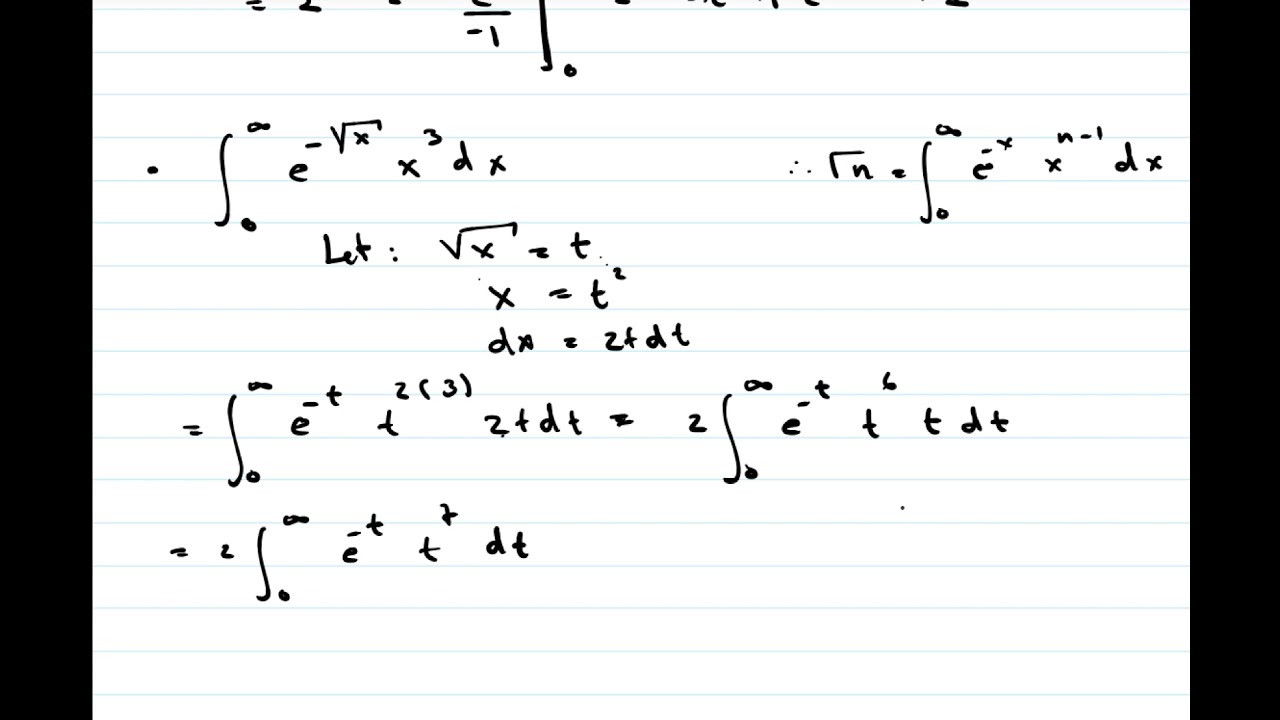 -1 0
• ∫₀^∞ e^{-√x} x³ dx ∴ Γn = ∫₀^∞ e^{-x} x^{n-1} dx
Let : √x = t
x = t²
dx = 2t dt
= ∫₀^∞ e^{-t} t^{2(3)} 2t dt = 2 ∫₀^∞ e^{-t} t⁶ t dt
= 2 ∫₀^∞ e^{-t} t⁷ dt